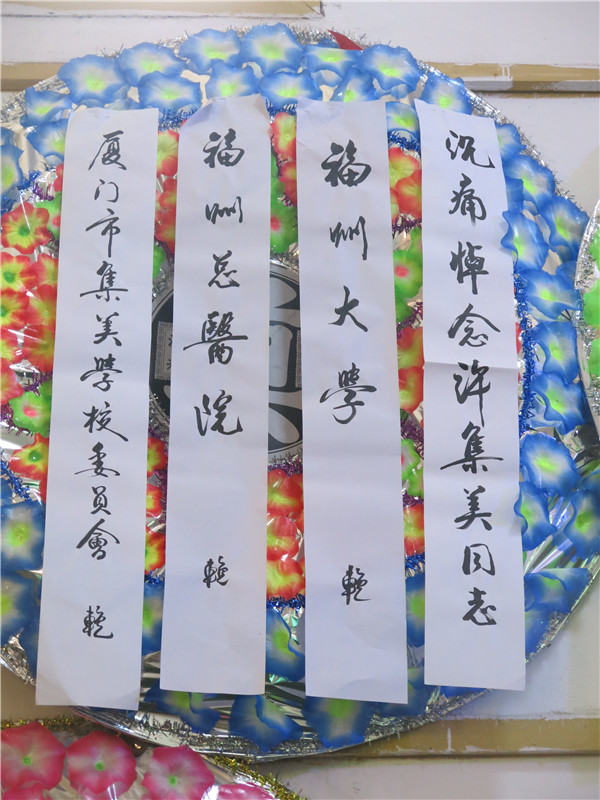 沉痛悼念许集美同志
福州大学 輓
福州总醫院 輓
厦门市集美学校委員會 輓